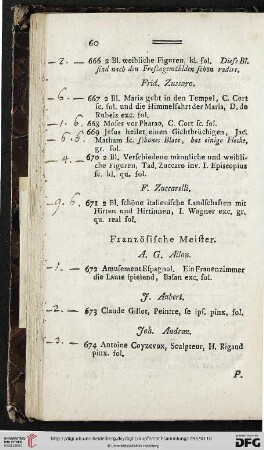 60
- 2. - 666 2 Bl. weibliche Figuren, kl. fol. Diese Bl.
sind nach den Frescogemählden schön radirt.
Frid. Zuccaro.
- 6. - 667 2 Bl. Maria geht in den Tempel, C. Cort
sc. fol. und die Himmelfahrt der Maria, D. de
Rubeis exc. fol.
- 1. 6. 668 Moses vor Pharao, C. Cort sc. fol.
- 6. 6. 669 Jesus heilet einen Gichtbrüchigen, Jac.
Matham sc. schönes Blatt, hat einige Flecke,
gr. fol.
- 4. - 670 2 Bl. Verschiedene männliche und weibli-
che Figuren, Tad. Zuccaro inv. I. Episcopius
sc. kl. qu. fol.
F. Zuccarelli.
- 9. 6. 671 2 Bl. schöne italienische Landschaften mit
Hirten und Hirtinnen, I. Wagner exc. gr.
qu. real fol.
Französische Meister.
A. G. Allou.
- 1. - 672 Amusement Espagnol. Ein Frauenzimmer
die Laute spielend, Basan exc. fol.
J. Aubert.
- 2. - 673 Claude Gillot, Peintre, se ips. pinx. fol.
Joh. Audran.
- 3. - 674 Antoine Coyzevox, Sculpteur, H. Rigaud
pinx. fol.
P.
UNIVERSITÄTS-
BIBLIOTHEK
HEIDELBERG
© Universitätsbibliothek Heidelberg
DFG